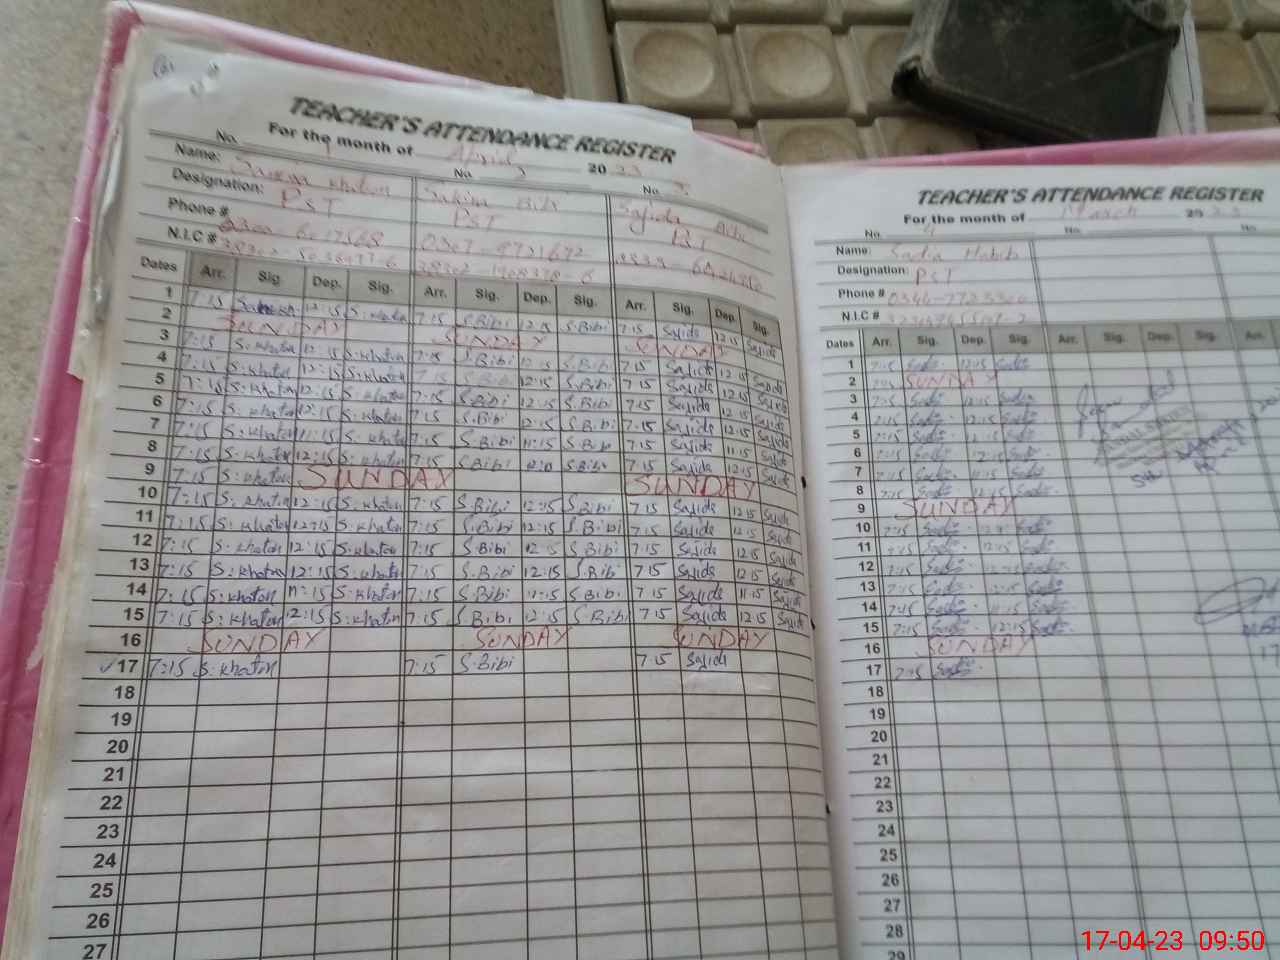 TEACHER'S ATTENDANCE REGISTER
For the month of April 2023
No. No. No.
Name: khaton Sakina Bibi Sajida
Designation: PST PST PST
Phone #
N.I.C #
Dates Arr. Sig. Dep. Sig. Arr. Sig. Dep. Sig. Arr. Sig. Dep. Sig.
1 7:15 12:15 7:15 S.Bibi 12:15 S.Bibi 7:15 Sajida 12:15 Sajida
2 SUNDAY SUNDAY SUNDAY
3 7:15 S.khaton 12:15 S.khaton 7:15 S.Bibi 12:15 S.Bibi 7:15 Sajida 12:15 Sajida
4 7:15 S.khaton 12:15 S.khaton 7:15 S.Bibi 12:15 S.Bibi 7:15 Sajida 12:15 Sajida
5 7:15 S.khaton 12:15 S.khaton 7:15 S.Bibi 12:15 S.Bibi 7:15 Sajida 12:15 Sajida
6 7:15 S.khaton 12:15 S.khaton 7:15 S.Bibi 12:15 S.Bibi 7:15 Sajida 12:15 Sajida
7 7:15 S.khaton 11:15 S.khaton 7:15 S.Bibi 11:15 S.Bibi 7:15 Sajida 11:15 Sajida
8 7:15 S.khaton 12:15 S.khaton 7:15 S.Bibi S.Bibi 7:15 Sajida 12:15 Sajida
9 7:15 S.khaton SUNDAY SUNDAY
10 7:15 S.khaton 12:15 S.khaton 7:15 S.Bibi 12:15 S.Bibi 7:15 Sajida 12:15 Sajida
11 7:15 S.khaton 12:15 S.khaton 7:15 S.Bibi 12:15 S.Bibi 7:15 Sajida 12:15 Sajida
12 7:15 S.khaton 12:15 S.khaton 7:15 S.Bibi 12:15 S.Bibi 7:15 Sajida 12:15 Sajida
13 7:15 S.khaton 12:15 S.khaton 7:15 S.Bibi 12:15 S.Bibi 7:15 Sajida 12:15 Sajida
14 7:15 S.khaton 11:15 S.khaton 7:15 S.Bibi 11:15 S.Bibi 7:15 Sajida 11:15 Sajida
15 7:15 S.khaton 12:15 S.khaton 7:15 S.Bibi 12:15 S.Bibi 7:15 Sajida 12:15 Sajida
16 SUNDAY SUNDAY SUNDAY
17 7:15 S.khaton 7:15 S.Bibi 7:15 Sajida
18
19
20
21
22
23
24
25
26
27
TEACHER'S ATTENDANCE REGISTER
For the month of March 2023
No. 4 No. No.
Name: Sadia Habib
Designation: PST
Phone #
N.I.C #
Dates Arr. Sig. Dep. Sig. Arr. Sig. Dep. Sig. Arr.
1 7:15 Sadia 12:15 Sadia
2 SUNDAY
3 7:15 Sadia 12:15 Sadia
4 7:15 Sadia 12:15 Sadia
5 7:15 Sadia 12:15 Sadia
6 7:15 Sadia 12:15 Sadia
7 7:15 Sadia 11:15 Sadia
8 7:15 Sadia Sadia
9 SUNDAY
10 7:15 Sadia 12:15 Sadia
11 7:15 Sadia 12:15 Sadia
12 7:15 Sadia 12:15 Sadia
13 7:15 Sadia 12:15 Sadia
14 7:15 Sadia 11:15 Sadia
15 7:15 Sadia 12:15 Sadia
16 SUNDAY
17 7:15 Sadia
18
19
20
21
22
23
24
25
26
27
28
29
17-04-23 09:50